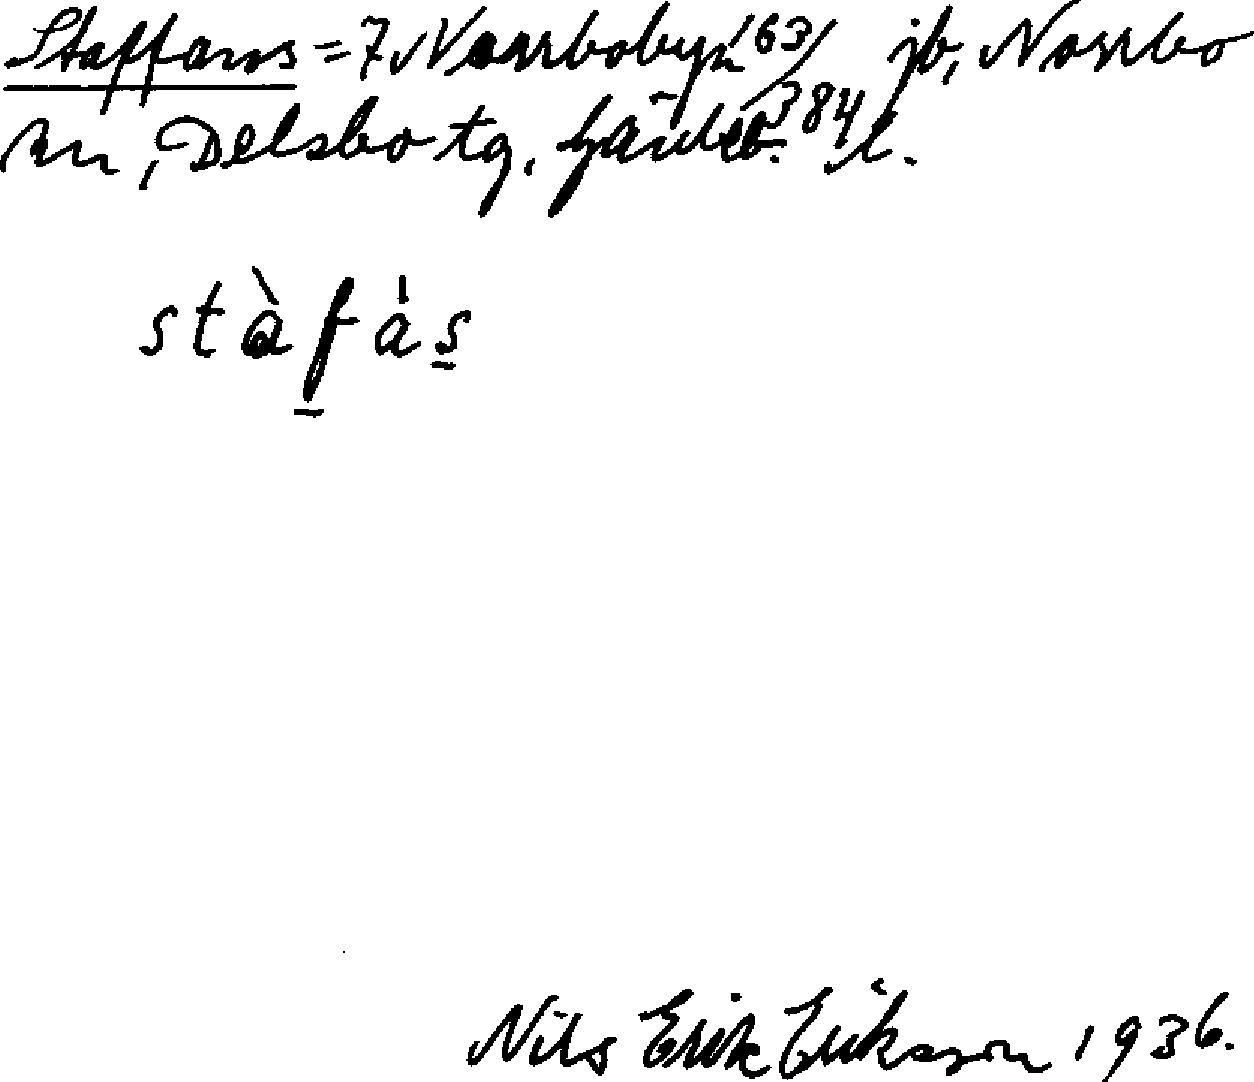 Staffans = 7 Norrbobyn 163/384 jb, Norrbo
sn, Delsbo tg, Gävleb. l.
stàfás
Nils Erik Eriksson 1936.